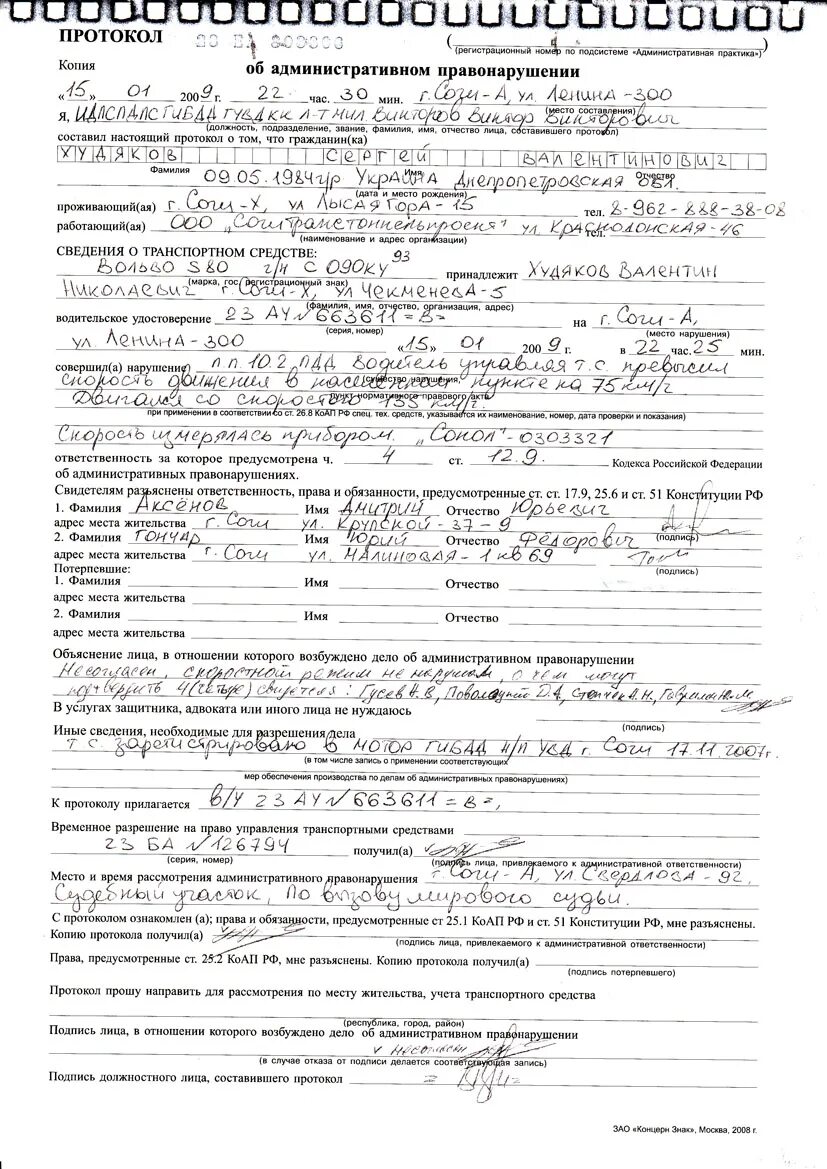 ПРОТОКОЛ
(регистрационный номер по подсистеме «Административная практика»)
Копия
об административном правонарушении
«15» 01 2009 г. 22 час. 30 мин. г. Сочи-А, ул. Ленина -300
(место составления)
я, ИДПС ГИБДД ГУВД КК л-т мил. Викторов Виктор Викторович
(должность, подразделение, звание, фамилия, имя, отчество лица, составившего протокол)
составил настоящий протокол о том, что гражданин(ка)
ХУДЯКОВ СЕРГЕЙ ВАЛЕНТИНОВИЧ
Фамилия Имя Отчество
09.05.1984г/р Украина Днепропетровская обл.
(дата и место рождения)
проживающий(ая) г. Сочи-Х, ул Лысая Гора - 15 тел. 8-962-888-38-08
работающий(ая) ООО „Сочтранстоннельпроект" ул. Краснодонская -46
тел.
(наименование и адрес организации)
СВЕДЕНИЯ О ТРАНСПОРТНОМ СРЕДСТВЕ: 93
Вольво S80 г/н С 090КУ принадлежит Худяков Валентин
(марка, гос. регистрационный знак)
Николаевич г. Сочи-Х, ул Чекменева -5
(фамилия, имя, отчество, организация, адрес)
водительское удостоверение 23 АУ № 663611 =В= на г. Сочи-А,
(серия, номер) (место нарушения)
ул. Ленина -300 «15» 01 2009 г. в 22 час. 25 мин.
совершил(а) нарушение п.п. 10.2 ПДД Водитель управляя т.с. превысил
(существо нарушения,
скорость движения в населённом пункте на 75 км/г
пункт нормативного правового акта
Двигался со скоростью 135 км/г.
при применении в соответствии со ст. 26.8 КоАП РФ спец. тех. средств, указывается их наименование, номер, дата проверки и показания)
Скорость измерялась прибором „Сокол" - 0303321
ответственность за которое предусмотрена ч. 4 ст. 12.9. Кодекса Российской Федерации
об административных правонарушениях.
Свидетелям разъяснены ответственность, права и обязанности, предусмотренные ст. ст. 17.9, 25.6 и ст. 51 Конституции РФ
1. Фамилия Аксёнов Имя Дмитрий Отчество Юрьевич
адрес места жительства г. Сочи ул. Крупской - 37 - 9
(подпись)
2. Фамилия Гончар Имя Юрий Отчество Фёдорович
адрес места жительства г. Сочи ул. Малиновая - 1 кв 69
(подпись)
Потерпевшие:
1. Фамилия Имя Отчество
адрес места жительства
2. Фамилия Имя Отчество
адрес места жительства
Объяснение лица, в отношении которого возбуждено дело об административном правонарушении
Несогласен, скоростной режим не нарушал, о чем могут
подтвердить 4 (четыре) свидетеля: Гусев В.,
В услугах защитника, адвоката или иного лица не нуждаюсь
(подпись)
Иные сведения, необходимые для разрешения дела
т.с. зарегистрировано в МОТОР ГИБДД УВД г. Сочи 17.11.2007г.
(в том числе запись о применении соответствующих
мер обеспечения производства по делам об административных правонарушениях)
К протоколу прилагается в/у 23 АУ № 663611 =В=,
Временное разрешение на право управления транспортными средствами
23 БА № 126794 получил(а)
(серия, номер) (подпись лица, привлекаемого к административной ответственности)
Место и время рассмотрения административного правонарушения г. Сочи-А, ул. Свердлова -92,
Судебный участок, По вызову мирового судьи.
С протоколом ознакомлен (а); права и обязанности, предусмотренные ст 25.1 КоАП РФ и ст. 51 Конституции РФ, мне разъяснены.
Копию протокола получил(а)
(подпись лица, привлекаемого к административной ответственности)
Права, предусмотренные ст. 25.2 КоАП РФ, мне разъяснены. Копию протокола получил(а)
(подпись потерпевшего)
Протокол прошу направить для рассмотрения по месту жительства, учета транспортного средства
(республика, город, район)
Подпись лица, в отношении которого возбуждено дело об административном правонарушении
v несогласен
(в случае отказа от подписи делается соответствующая запись)
Подпись должностного лица, составившего протокол
ЗАО «Концерн Знак», Москва, 2008 г.